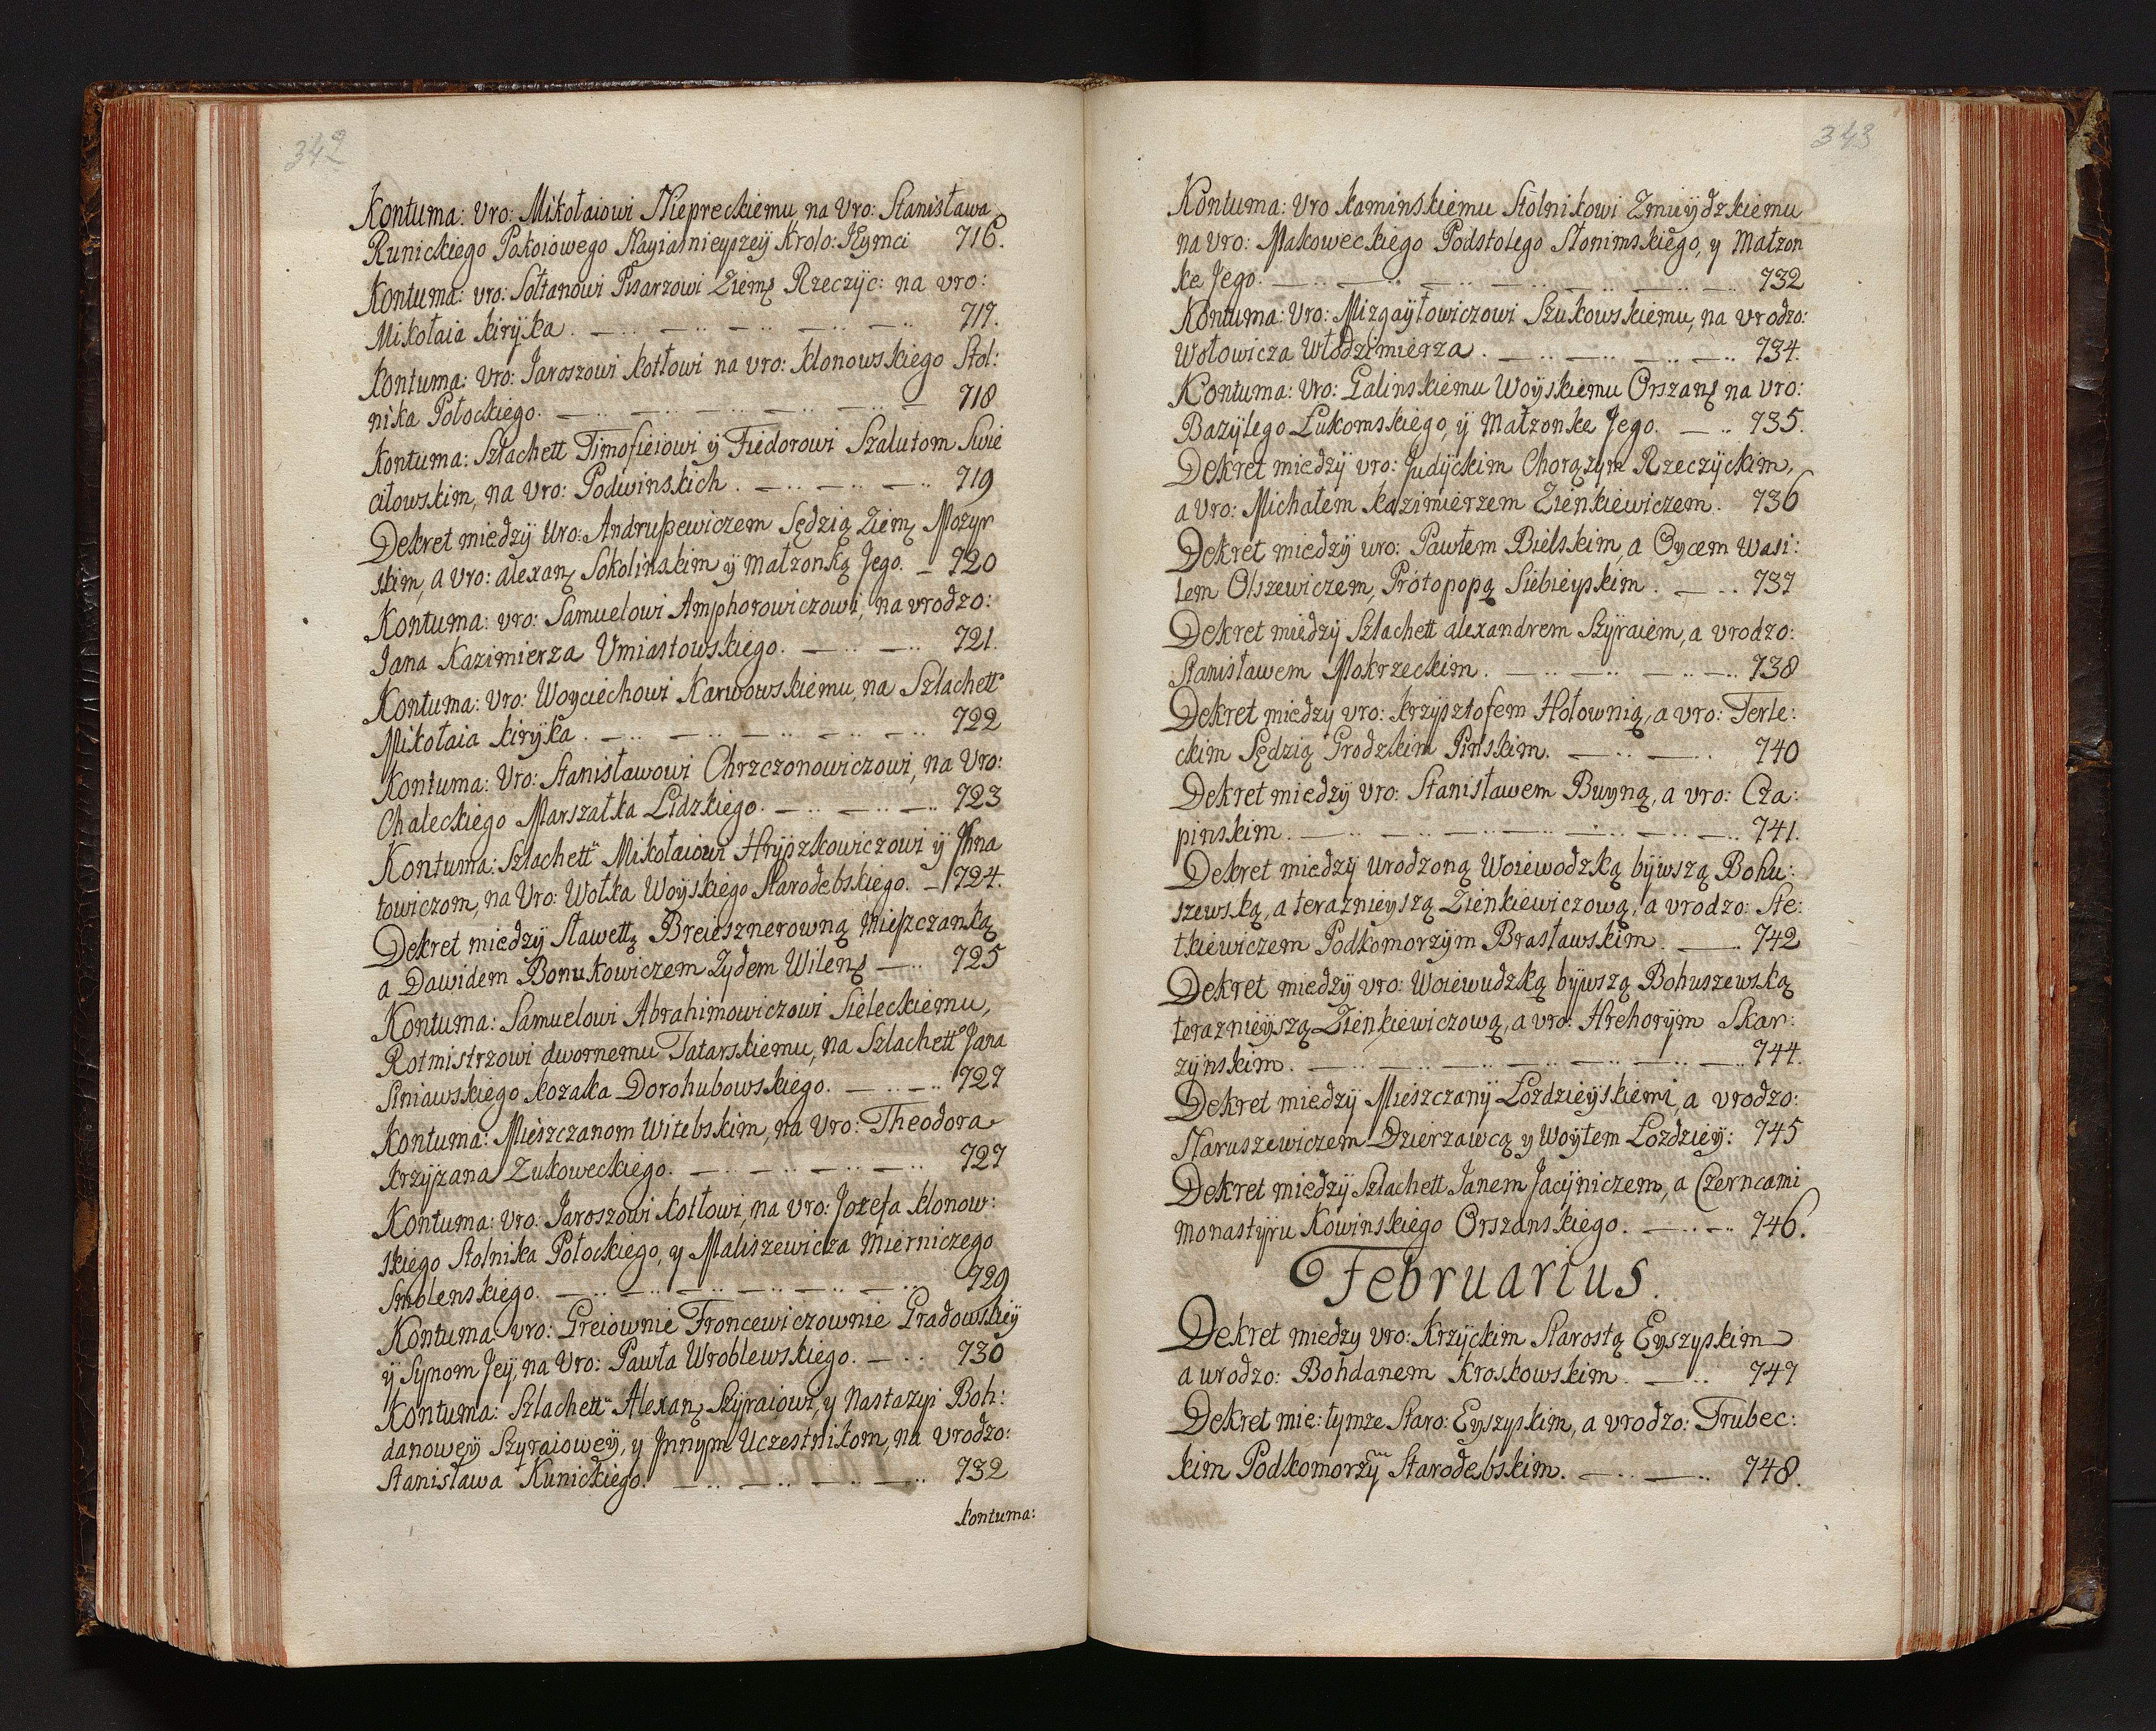 342
Kontuma: Vro: Mikołaiowi Niepreckiemu na Vro: Stanisława
Runickiego Pokoiowego Nayiasnieyszeÿ Krolo: JEymci 716.
Kontuma: vro: Sołtanowi Pisarzowi Ziem: Rzeczÿc: na vro:
Mikołaia kirÿka. 717.
Kontuma: Vro: Jaroszowi kotłowi na vro: klonowskiego Stol:
nika Połockiego. 718
Kontuma: Szlachett Timofieiowi ÿ Fiedorowi Szalutom Swie
ciłowskim, na Vro: Podwinskich. 719
Dekret miedzÿ Uro: Andruszewiczem Sędzią Ziem: Mozyr
skim, a Vro: alexan: Sokolinskim ÿ małzonką Jego. 720
Kontuma: vro: Samuelowi Amphorowiczowi, na vrodzo:
Jana Kazimierza Vmiastowskiego. 721.
Kontuma: Vro: Woyciechowi Karwowskiemu, na Szlachett
Mikołaia kirÿka. 722
Kontuma: Vro: Stanisławowi Chrzczonowiczowi, na Vro:
Chaleckiego Marszałka Lidzkiego. 723
Kontuma: Szlachett Mikołaiowi Hrÿszkowiczowi ÿ Jhna
towiczom, na Vro: Wołka Woÿskiego Starodebskiego. 724.
Dekret miedzÿ Sławett: Breiesznerowną Mieszczanką
a Dawidem Bonukowiczem Zydem Wilens 725
Kontuma: Samuelowi Abrahimowiczowi Sieleckiemu,
Rotmistrzowi dwornemu Tatarskiemu, na Szlachett Jana
Siniawskiego kozaka Dorohubowskiego. 727
Kontuma: Mieszczanom Witebskim, na Vro: Theodora
Krzÿzana Zukoweckiego. 727
Kontuma: Vro: Jaroszowi kotłowi, na vro: Jozefa klonow:
skiego Stolnika Połockiego, y Maliszewicza Mierniczego
Smolenskiego. 729
Kontuma vro: Greiownie Froncewiczownie Gradowskieÿ
ÿ Synom Jeÿ, na Vro: Pawła Wroblewskiego. 730
Kontuma: Szlachett Alexan: Szÿraiowi, y Nastazyi Boh:
danoweÿ Szyraioweÿ, y Jnnym Uczestnikom, na vrodzo:
Stanisława Kunickiego. 732
kontuma:
343
Kontuma: Vro kaminskiemu Stolnikowi Zmuÿdzkiemu
na vro: Makoweckiego Podstolego Słonimskiego, y Małzon
ke Jego. 732
Kontuma: Vro: Mizgaÿłowiczowi Szukowskiemu, na vrodzo:
Wołowicza Włodzimierza. 734.
Kontuma: Vro: Galinskiemu Woÿskiemu Orszans na vro:
Bazÿlego Łukomskiego, ÿ Małzonke Jego. 735.
Dekret miedzÿ vro: Judÿckim Chorązym Rzeczÿckim,
a Vro: Michałem kazimierzem Zienkiewiczem. 736
Dekret miedzÿ uro: Pawłem Bielskim, a Oycem Wasi:
lem Olszewiczem, Protopopą Siebieyskim. 737
Dekret miedzÿ Szlachett alexandrem Szÿraiem, a vrodzo:
Stanisławem Mokrzeckim. 738
Dekret miedzÿ vro: krzÿsztofem Hołownią, a vro: Terle:
ckim Sędzią Grodzkim Pinskim. 740
Dekret miedzÿ vro: Stanisławem Buyną, a vro: Cza:
pinskim. 741.
Dekret miedzÿ urodzoną Woiewodzką bÿwszą Bohu:
szewską, a teraznieyszą Zienkiewiczową, a vrodzo: Ste:
tkiewiczem Podkomorzÿm Brasławskim. 742
Dekret miedzÿ vro: Woiewudzką bÿwszą Bohuszewską
teraznieÿszą Zienkiewiczową, a vro: Hrehorÿm Skar:
zÿnskim. 744.
Dekret miedzÿ Mieszczanÿ Łozdzieÿskiemi, a vrodzo:
Staruszewiczem Dzierzawcą y Woÿtem Łozdzieÿ: 745
Dekret miedzÿ Szlachett Janem Jacÿniczem, a Czerncami
monastÿru Kowinskiego Orszanskiego. 746.
Februarius.
Dekret miedzy vro: Krzÿckim Starostą Eyszyskim
a urodzo: Bohdanem Kroskowskim. 747
Dekret mie: tymze Staro: Eyszyskim, a vrodzo: Trubec:
kim Podkomorzÿm Starodebskim. 748.